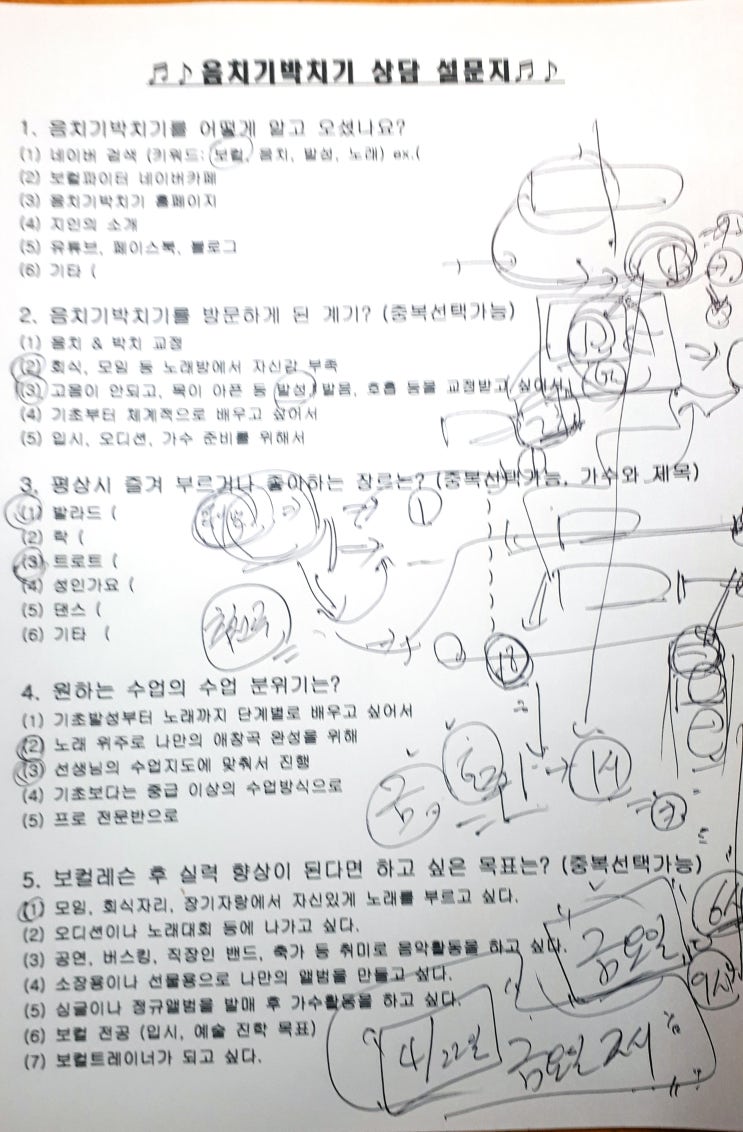 ♬♪음치기박치기 상담 설문지♬♪
1. 음치기박치기를 어떻게 알고 오셨나요?
(1) 네이버 검색 (키워드: 보컬, 음치, 발성, 노래) ex.(
(2) 보컬파이터 네이버카페
(3) 음치기박치기 홈페이지
(4) 지인의 소개
(5) 유튜브, 페이스북, 블로그
(6) 기타 (
2. 음치기박치기를 방문하게 된 계기? (중복선택가능)
(1) 음치 & 박치 교정
(2) 회식, 모임 등 노래방에서 자신감 부족
(3) 고음이 안되고, 목이 아픈 등 발성, 발음, 호흡 등을 교정받고 싶어서
(4) 기초부터 체계적으로 배우고 싶어서
(5) 입시, 오디션, 가수 준비를 위해서
3. 평상시 즐겨 부르거나 좋아하는 장르는? (중복선택가능, 가수와 제목)
(1) 발라드 (
(2) 락 (
(3) 트로트 (
(4) 성인가요 (
(5) 댄스 (
(6) 기타 (
4. 원하는 수업의 수업 분위기는?
(1) 기초발성부터 노래까지 단계별로 배우고 싶어서
(2) 노래 위주로 나만의 애창곡 완성을 위해
(3) 선생님의 수업지도에 맞춰서 진행
(4) 기초보다는 중급 이상의 수업방식으로
(5) 프로 전문반으로
1시
5. 보컬레슨 후 실력 향상이 된다면 하고 싶은 목표는? (중복선택가능)
(1) 모임, 회식자리, 장기자랑에서 자신있게 노래를 부르고 싶다.
(2) 오디션이나 노래대회 등에 나가고 싶다.
(3) 공연, 버스킹, 직장인 밴드, 축가 등 취미로 음악활동을 하고 싶다.
(4) 소장용이나 선물용으로 나만의 앨범을 만들고 싶다.
(5) 싱글이나 정규앨범을 발매 후 가수활동을 하고 싶다.
(6) 보컬 전공 (입시, 예술 진학 목표)
(7) 보컬트레이너가 되고 싶다.
금요일
6시
9시
4/22일 금요일 2시